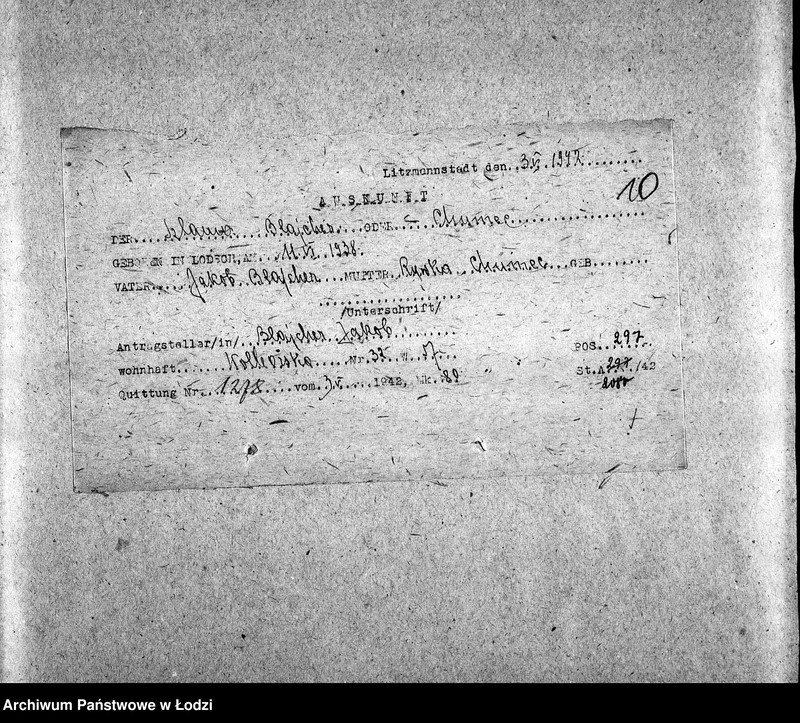 Litzmannstadt den..3.VI.1942........
10
A U S K U N F T
DER.... ..Blajcher...ODER.....Chumec................
GEBOREN IN LODSCH, AM...11.VI.1938.
VATER....Jakob.Blajcher...MUTTER.Rywka..Chumec..GEB........
/Unterschrift/
Antragsteller/in/..Blajcher..Jakob........
wohnhaft......... .....Nr.32.W.17... POS..297..
Quittung Nr...1278....vom.3.V....1942, Mk.-80 St.A.297./42